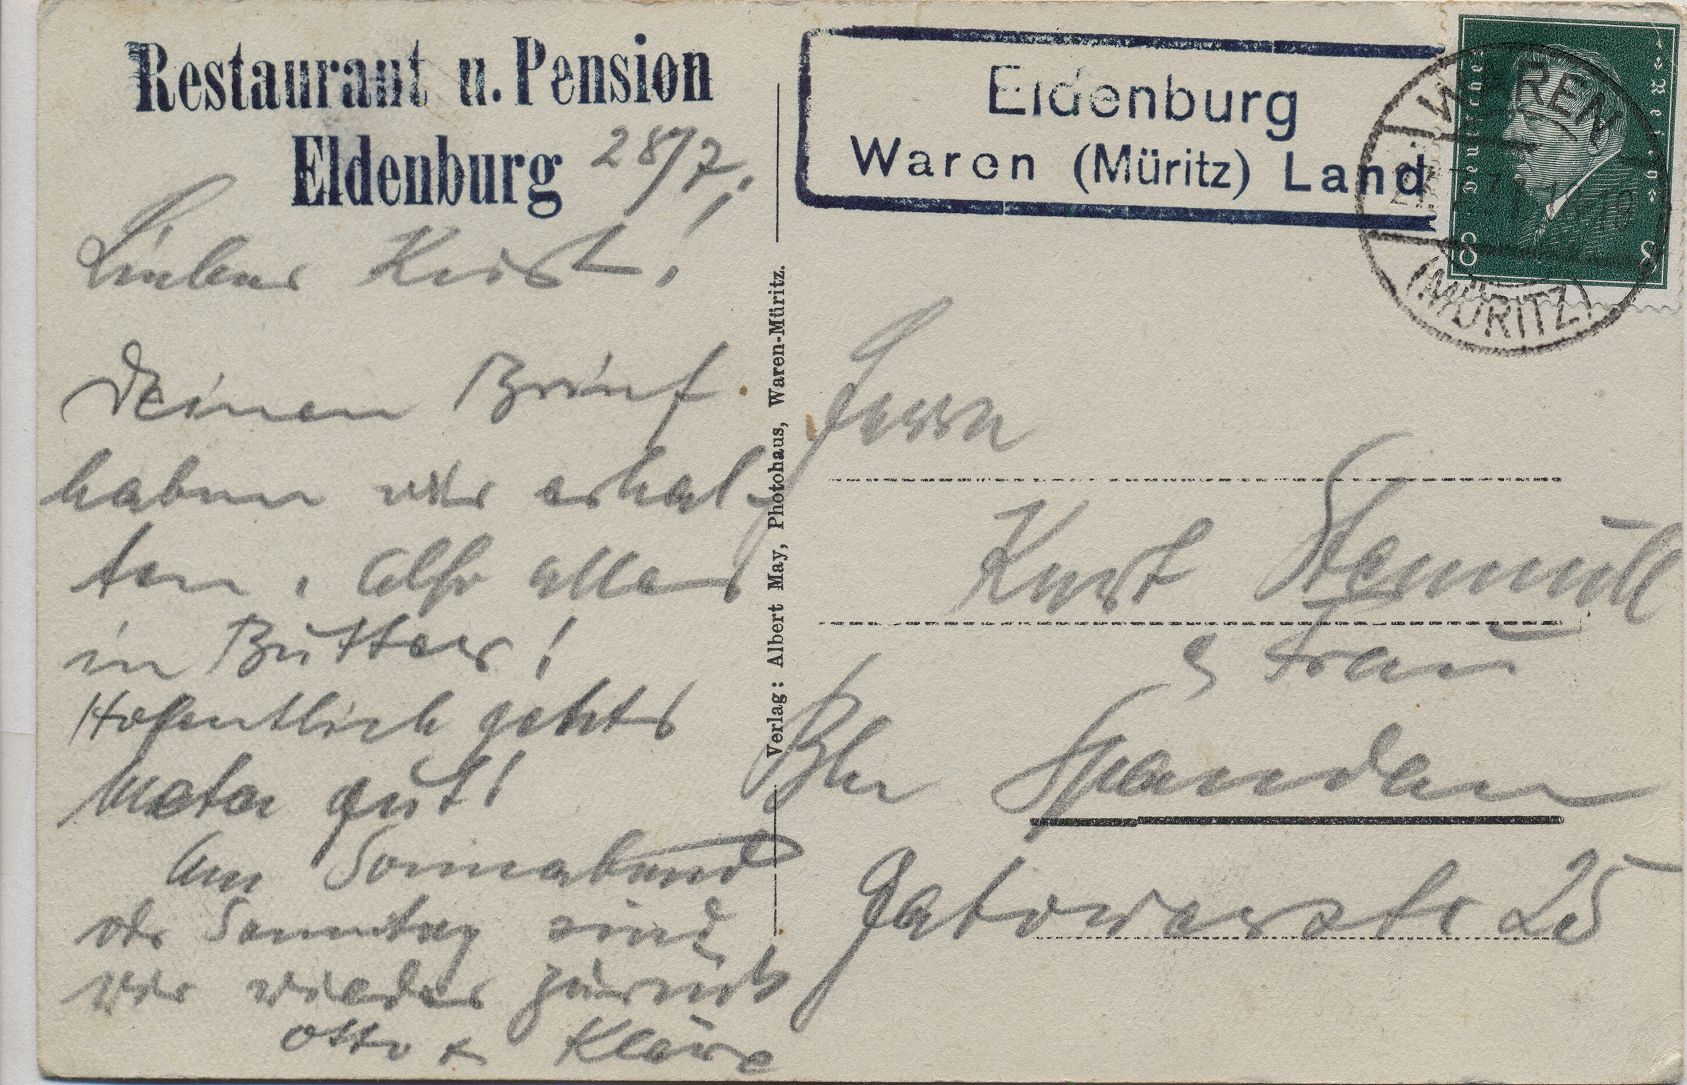 Restaurant u. Pension
Eldenburg
28/7.
Lieber Kurt!
Deinen Brief
haben wir erhal-
ten. Also alles
in Butter!
Hoffentlich gehts
weiter gut!
Am Sonnabend
od. Sonntag sind
wir wieder zurück
Otto + Kläre
Verlag: Albert May, Photohaus, Waren-Müritz.
Eldenburg
Waren (Müritz) Land
WAREN
(MÜRITZ)
Deutsches Reich
8 8
Herrn
Kurt
& Frau
Bln Spandau
Gatowerstr 25